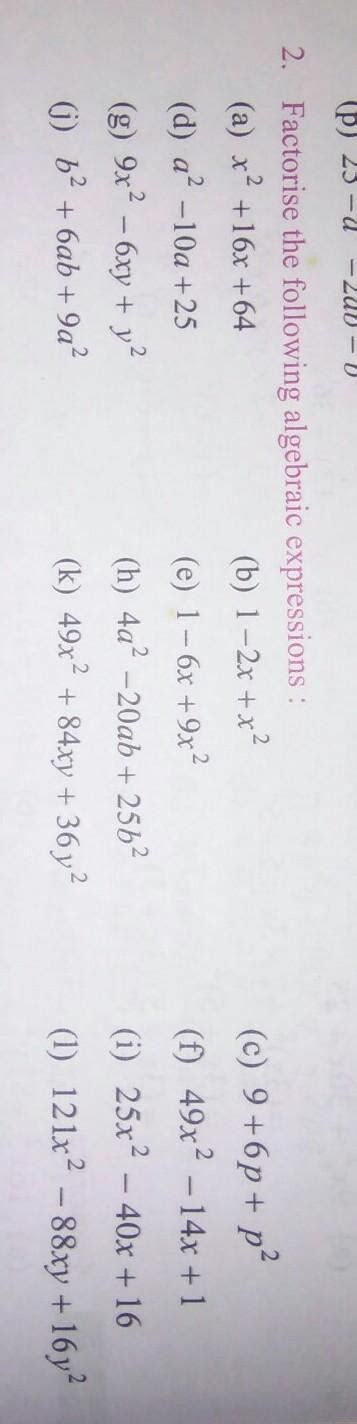 2. Factorise the following algebraic expressions :
(a) x² + 16x + 64 (b) 1 – 2x + x² (c) 9 + 6p + p²
(d) a² – 10a + 25 (e) 1 – 6x + 9x² (f) 49x² – 14x + 1
(g) 9x² – 6xy + y² (h) 4a² – 20ab + 25b² (i) 25x² – 40x + 16
(j) b² + 6ab + 9a² (k) 49x² + 84xy + 36y² (l) 121x² – 88xy + 16y²